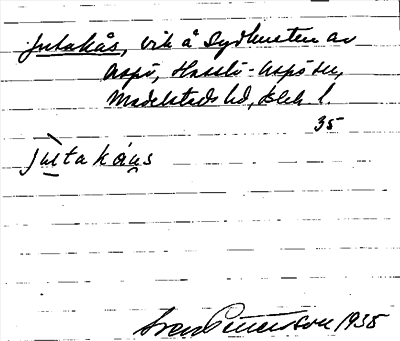 Jutakås, vik å Sydkusten av
Aspö, Hasslö-Aspö sn,
Medelstads hd, Blek l.
35
jutakåus
Sven Petersson 1935